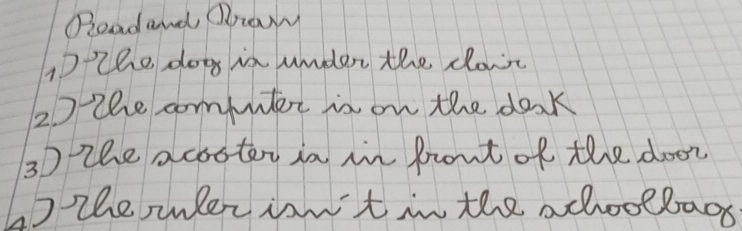 Read and Draw
1) The dog is under the chair
2) The computer is on the desk
3) The scooter is in front of the door
4) The ruler isn't in the schoolbag.